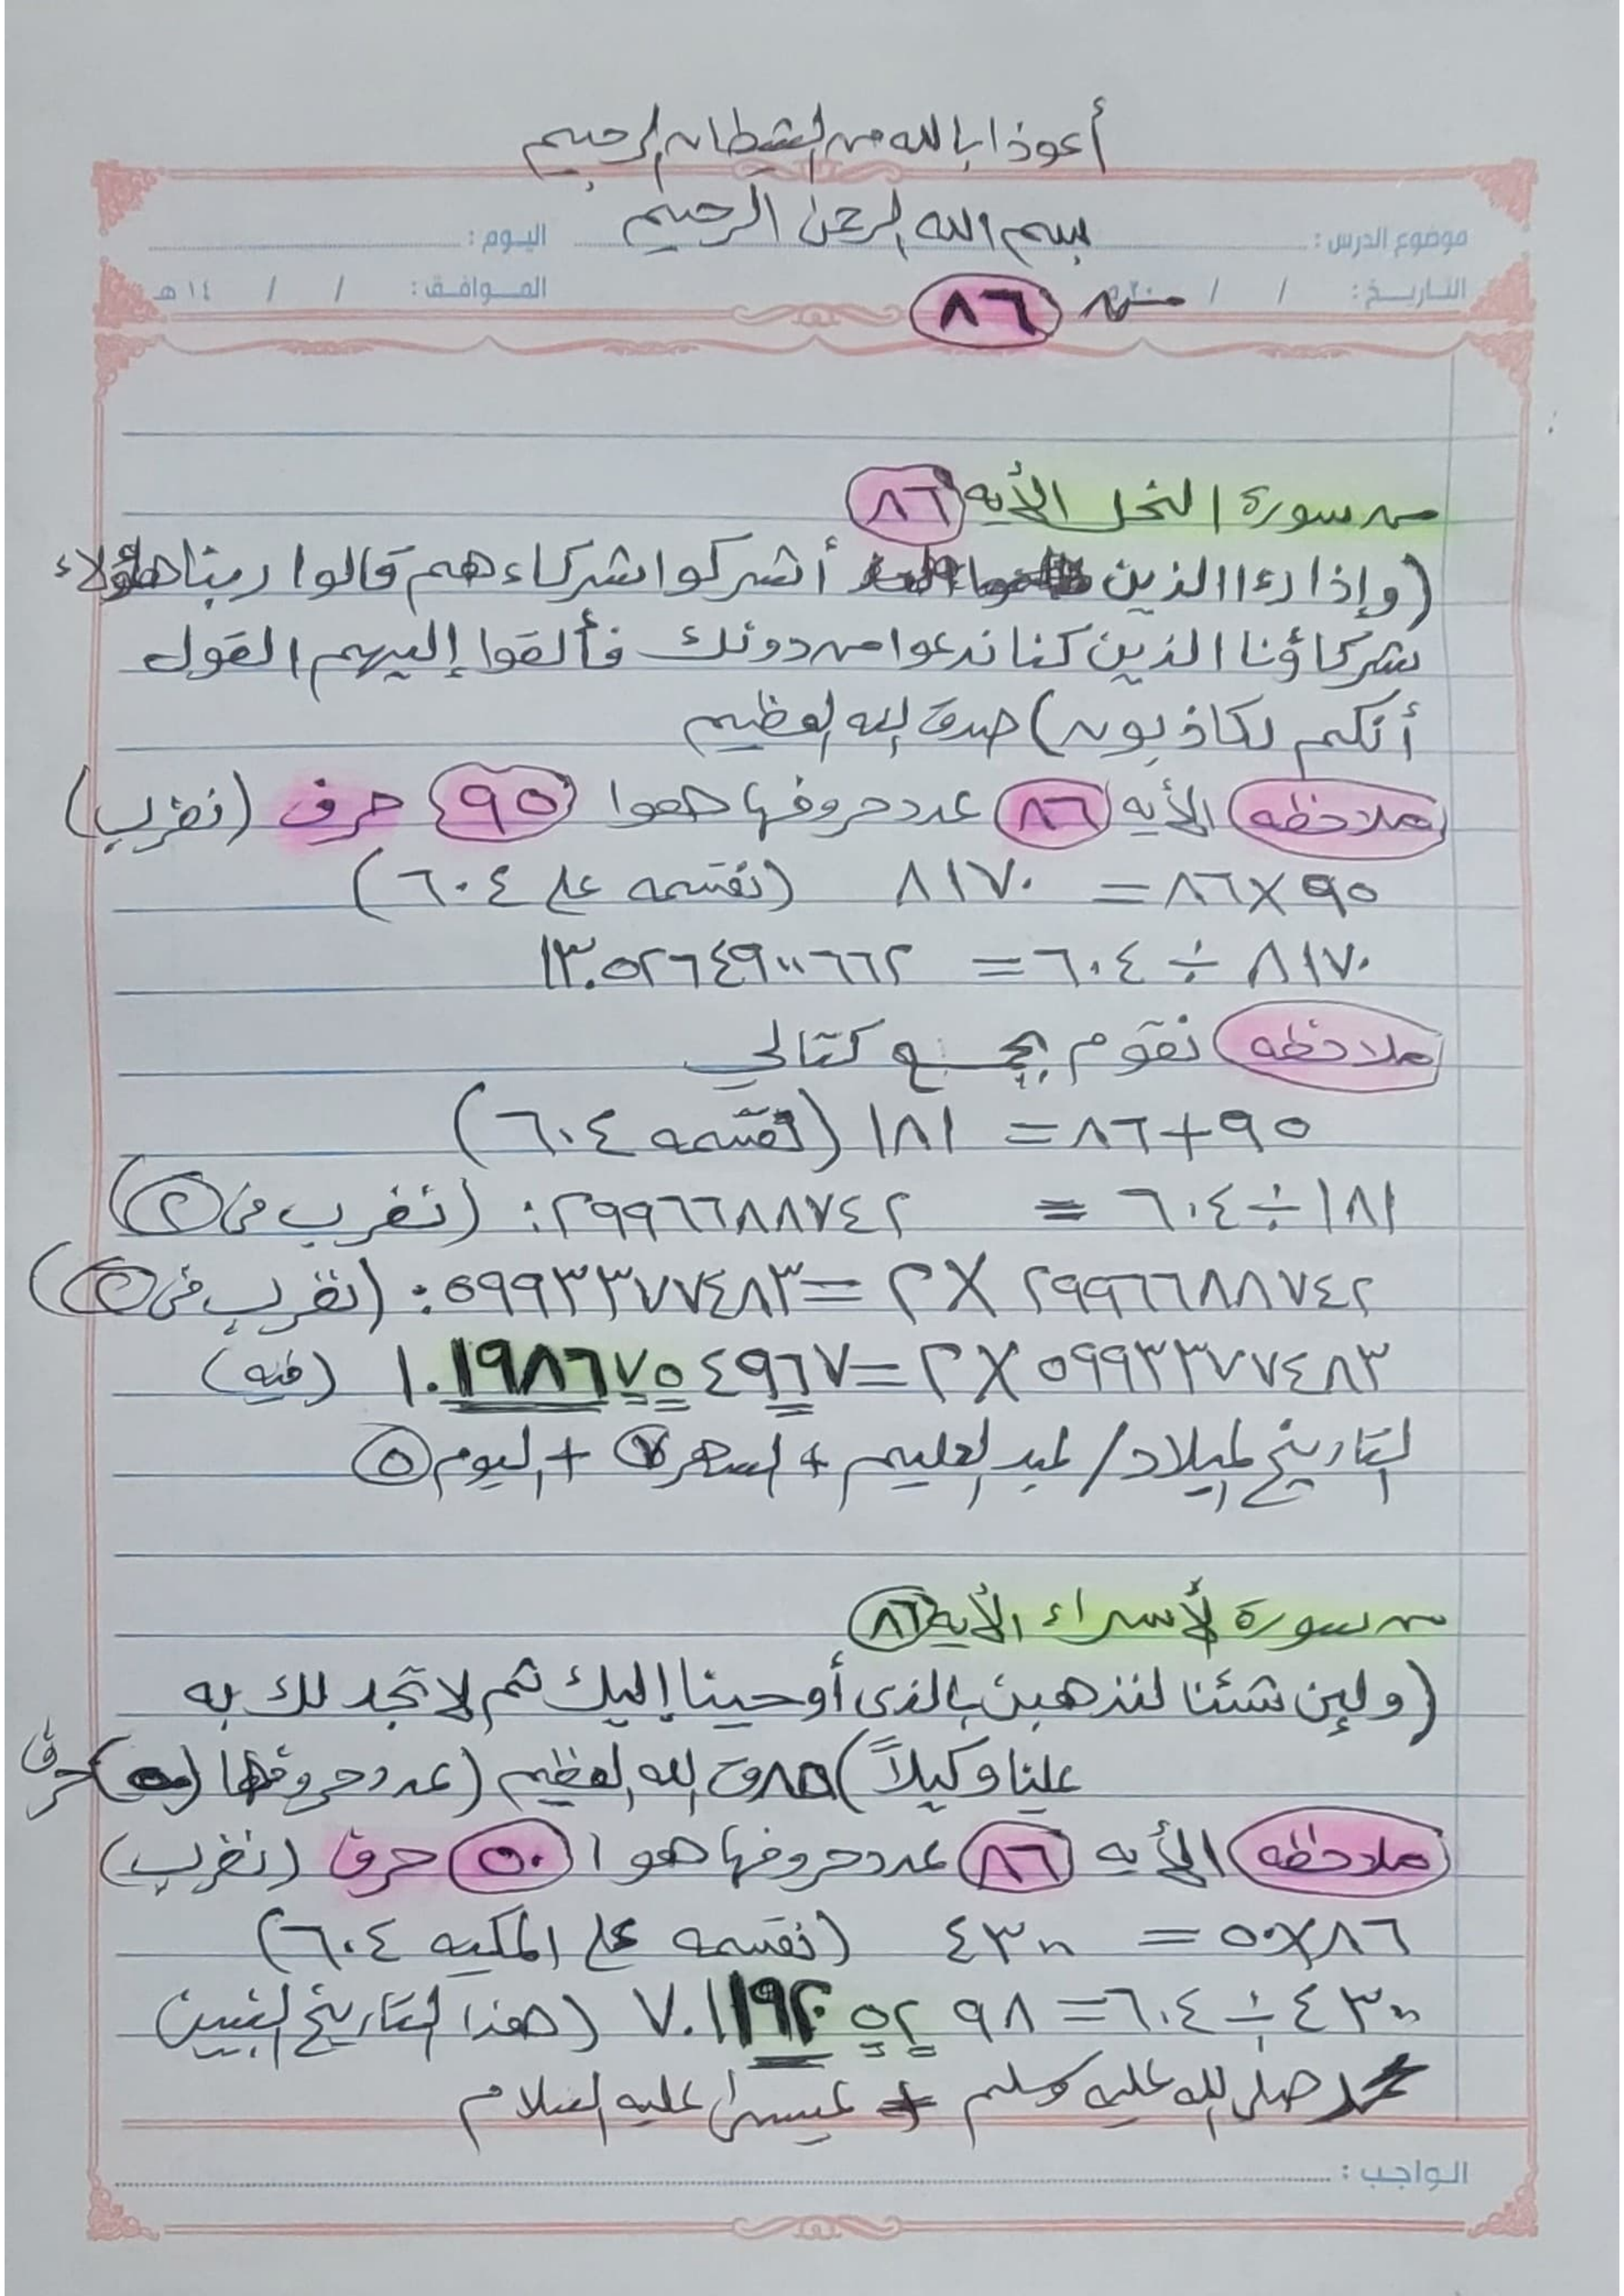 أعوذا بالله من الشيطان الرجيم
بسم الله الرحمن الرحيم
موضوع الدرس : اليوم :
التاريخ : / / ٢٠ م الموافق : / / ١٤ هـ
من ٨٦
من سورة النحل الأيه ٨٦
(وإذا رءا الذين أشركوا شركاءهم قالوا ربنا هؤلاء
شركاؤنا الذين كنا ندعوا من دونك فألقوا إليهم القول
أنكم لكاذبون) صدق الله العظيم
ملاحظه الأيه ٨٦ عدد حروفها هوا ٩٥ حرف (نضرب)
٩٥×٨٦= ٨١٧٠ (نقسمه على ٦٠٤)
٨١٧٠ ÷ ٦٠٤= ١٣.٥٢٦٤٩٠٠٦٦٢
ملاحظه نقوم بجمع كتالي
٩٥+٨٦= ١٨١ (نقسمه ٦٠٤)
١٨١÷٦٠٤ = ٢٩٩٦٦٨٨٧٤٢: (نضرب في ٢)
٢٩٩٦٦٨٨٧٤٢ × ٢=٥٩٩٣٣٧٧٤٨٣: (نضرب في ٢)
٥٩٩٣٣٧٧٤٨٣ × ٢=١.١٩٨٦٧٥٤٩٦٧ (فيه)
التاريخ لميلاد/ لعبد العليم + الشهر ٧ + اليوم ٥
من سورة لأسراء الأيه ٨٦
(ولئن شئنا لنذهبن بالذى أوحينا إليك ثم لا تجد لك به
علينا وكيلاً) صدق الله العظيم (عدد حروفها (٥٠) حرف
ملاحظه الأيه ٨٦ عدد حروفها هوا ٥٠ حرف (نضرب)
٨٦×٥٠ = ٤٣٠٠ (نقسمه على المكيه ٦٠٤)
٤٣٠٠ ÷ ٦٠٤= ٧.١١٩٢٠٥٢٩٨ (هذا التاريخ لنبيين
محمد صلى الله عليه وسلم + عيسى عليه السلام
الواجب :